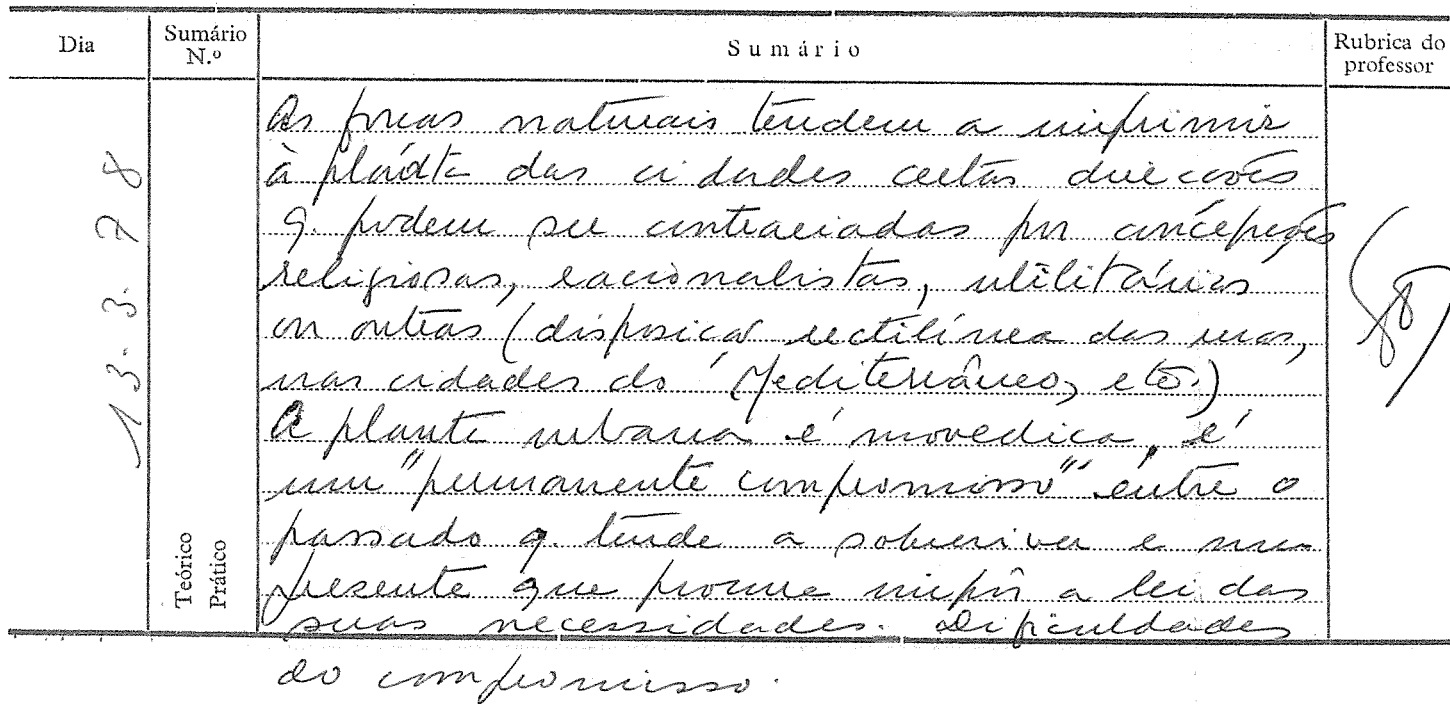 Dia
Sumário N.º
Sumário
Rubrica do professor
13.3.78
Teórico
Prático
As forças naturais tendem a imprimir
à planta das cidades certas direcções
q. podem ser contrariadas por concepções
religiosas, racionalistas, utilitárias
ou outras (disposição rectilínea das ruas,
nas cidades do Mediterrâneo, etc.)
A planta urbana é movediça, é
um "permanente compromisso" entre o
passado q. tende a sobreviver e um
presente que procura impôr a lei das
suas necessidades. Dificuldades
do compromisso.